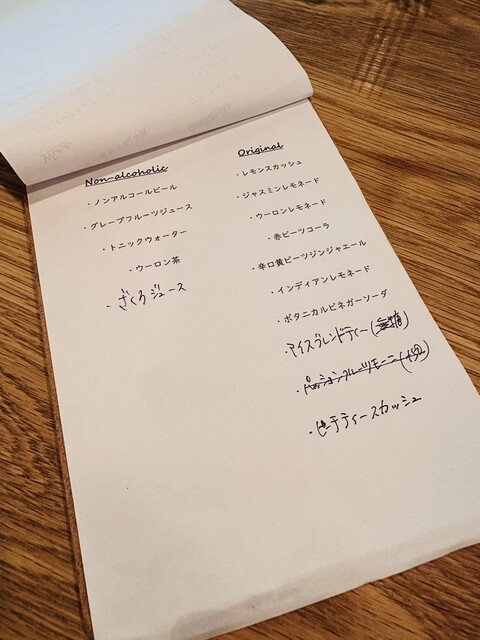 Non-alcoholic
・ノンアルコールビール
・グレープフルーツジュース
・トニックウォーター
・ウーロン茶
・ざくろジュース
Original
・レモンスカッシュ
・ジャスミンレモネード
・ウーロンレモネード
・赤ビーツコーラ
・辛口黄ビーツジンジャエール
・インディアンレモネード
・ボタニカルビネガーソーダ
・アイスブレンドティー
・ピーチティースカッシュ